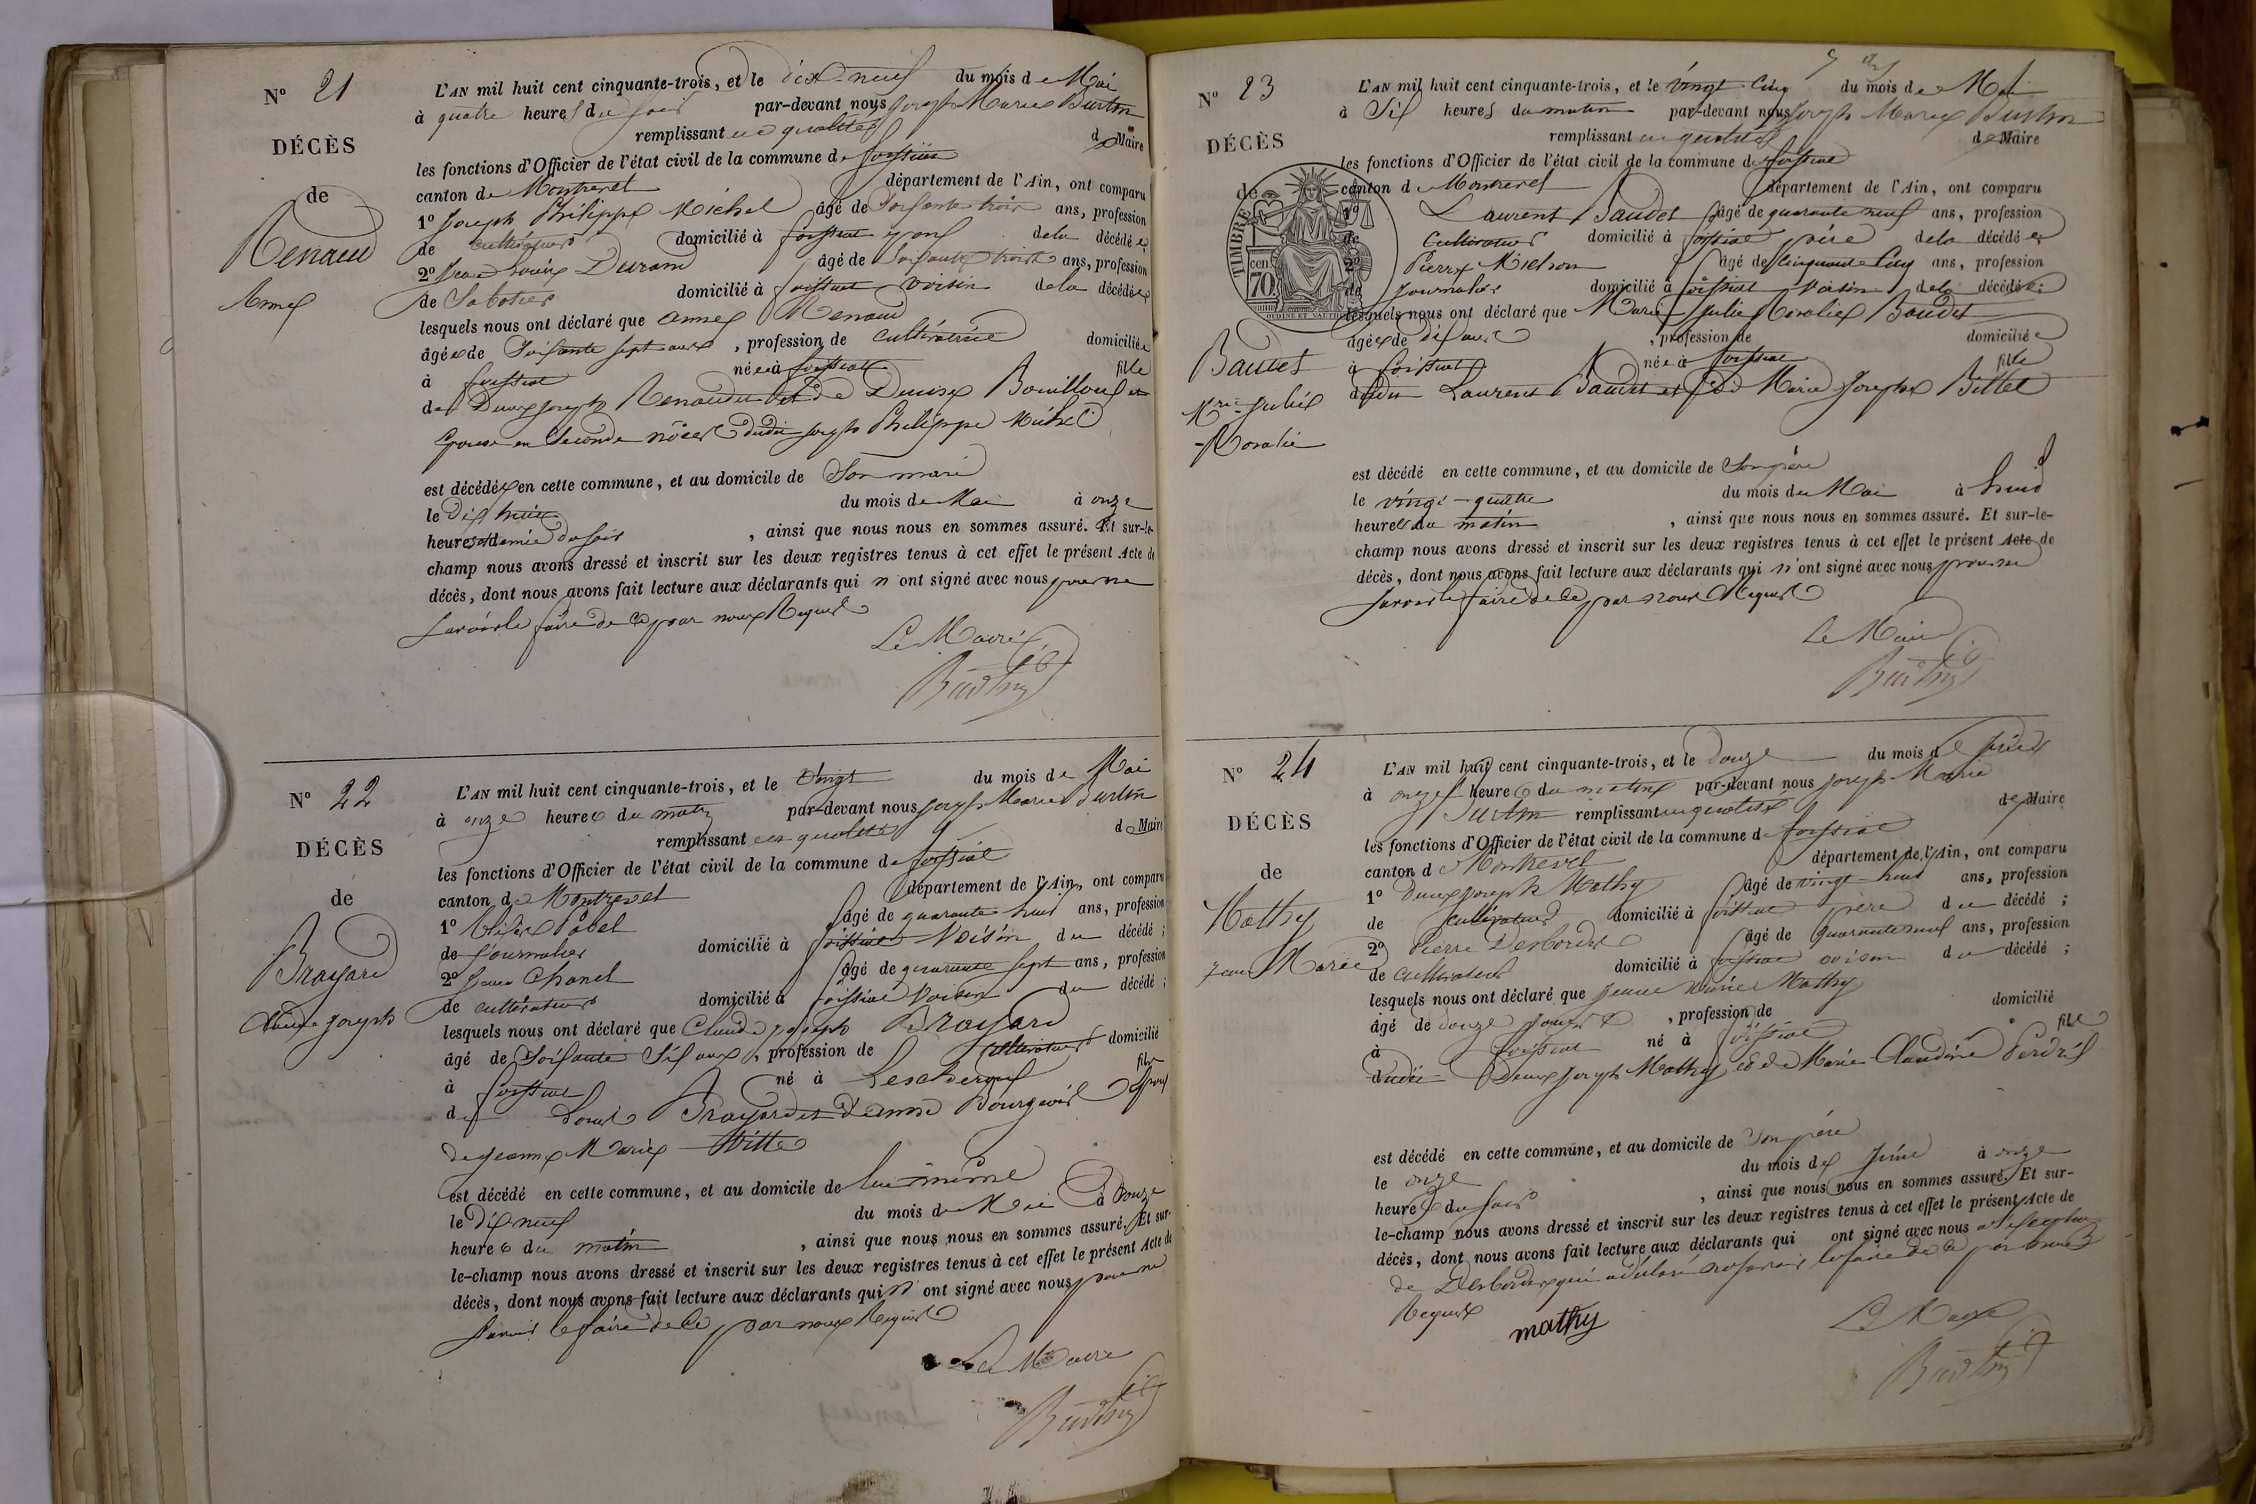 N° 21
DÉCÈS
de
Renaud
Anne
L'AN mil huit cent cinquante-trois, et le dix-neuf du mois de Mai
à quatre heures du soir par-devant nous Joseph Marie Burtin
remplissant en qualité de Maire
les fonctions d'Officier de l'état civil de la commune de foissiat
canton de Montrevel département de l'Ain, ont comparu
1° Joseph Philippe Michel âgé de Soixante trois ans, profession
de cultivateur domicilié à foissiat époux dela décédée
2° Jean Louis Durand âgé de Soixante trois ans, profession
de Sabotier domicilié à foissiat voisin dela décédée
lesquels nous ont déclaré que anne Renaud
âgée de Soixante sept ans, profession de cultivatrice domiciliée
à foissiat née à foissiat fille
de Denis Joseph Renaud et de Denise Bouilloux et
Epouse en Seconde nôces dudit Joseph Philippe Michel
est décédée en cette commune, et au domicile de Son mari
le Dix huit du mois de Mai à onze
heures et demie du soir, ainsi que nous nous en sommes assuré. Et sur-le-
champ nous avons dressé et inscrit sur les deux registres tenus à cet effet le présent Acte de
décès, dont nous avons fait lecture aux déclarants qui n'ont signé avec nous pour ne
savoir le faire de ce par nous Requis
Le Maire
Burtin
N° 22
DÉCÈS
de
Brayard
Claude Joseph
L'AN mil huit cent cinquante-trois, et le vingt du mois de Mai
à onze heures du matin par-devant nous Joseph Marie Burtin
remplissant en qualité de Maire
les fonctions d'Officier de l'état civil de la commune de foissiat
canton de Montrevel département de l'Ain, ont comparu
1° Pobel âgé de quarante huit ans, profession
de Journalier domicilié à foissiat Voisin du décédé ;
2° Jean Chanel âgé de quarante sept ans, profession
de cultivateur domicilié à foissiat Voisin du décédé ;
lesquels nous ont déclaré que Claude Joseph Brayard
âgé de Soixante Six ans, profession de cultivateur domicilié
à foissiat né à Lescheroux fils
de Louis Brayard et d'anne Bourgeois Epoux
de jeanne Marie Vitte
est décédé en cette commune, et au domicile de lui-même
le Dix neuf du mois de Mai à onze
heures du matin, ainsi que nous nous en sommes assuré. Et sur-
le-champ nous avons dressé et inscrit sur les deux registres tenus à cet effet le présent Acte de
décès, dont nous avons fait lecture aux déclarants qui n'ont signé avec nous pour ne
savoir le faire de ce par nous Requis
Le Maire
Burtin
N° 23
DÉCÈS
de
TIMBRE
cen
70
Baudet
Mrie Julie
Rosalie
L'AN mil huit cent cinquante-trois, et le vingt Cinq du mois de Mai
à Six heures du matin par-devant nous Joseph Marie Burtin
remplissant en qualité de Maire
les fonctions d'Officier de l'état civil de la commune de foissiat
canton de Montrevel département de l'Ain, ont comparu
1° Laurent Baudet âgé de quarante neuf ans, profession
de Cultivateur domicilié à foissiat père dela décédée
2° Pierre Michon âgé de Cinquante Cinq ans, profession
de Journalier domicilié à foissiat voisin dela décédée;
lesquels nous ont déclaré que Marie Julie Rosalie Baudet
âgée de dix ans, profession de domiciliée
à foissiat née à foissiat fille
dudit Laurent Baudet et de Marie Josephe Billet
est décédé en cette commune, et au domicile de Son père
le vingt-quatre du mois de Mai à huit
heures du matin, ainsi que nous nous en sommes assuré. Et sur-le-
champ nous avons dressé et inscrit sur les deux registres tenus à cet effet le présent Acte de
décès, dont nous avons fait lecture aux déclarants qui n'ont signé avec nous pour ne
savoir le faire de ce par nous Requis
Le Maire
Burtin
N° 24
DÉCÈS
de
Mathy
Jean Marie
L'AN mil huit cent cinquante-trois, et le Douze du mois de Juin
à onze heures du matin par-devant nous Joseph Marie
Burtin remplissant en qualité de Maire
les fonctions d'Officier de l'état civil de la commune de foissiat
canton de Montrevel département de l'Ain, ont comparu
1° Denis Joseph Mathy âgé de vingt huit ans, profession
de cultivateur domicilié à foissiat père du décédé ;
2° Pierre Desbordes âgé de quarante neuf ans, profession
de cultivateur domicilié à foissiat voisin du décédé ;
lesquels nous ont déclaré que Jean Marie Mathy
âgé de douze jours, profession de domicilié
à foissiat né à foissiat fils
dudit Denis Joseph Mathy et de Marie Claudine Perdrix
est décédé en cette commune, et au domicile de Son père
le onze du mois de Juin à onze
heures du soir, ainsi que nous nous en sommes assuré. Et sur-
le-champ nous avons dressé et inscrit sur les deux registres tenus à cet effet le présent Acte de
décès, dont nous avons fait lecture aux déclarants qui ont signé avec nous à l'exception
de Desbordes qui a déclaré ne savoir le faire de ce par nous
Requis
mathy
Le Maire
Burtin